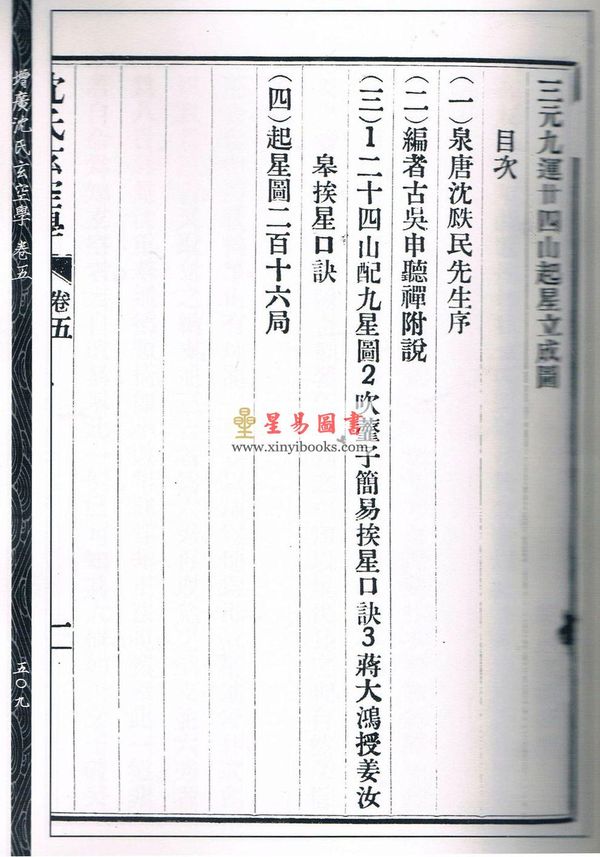 三元九運廿四山起星立成圖
目次
(一)泉唐沈瓞民先生序
(二)編者古吳申聽禪附說
(三)1二十四山配九星圖2吹虀子簡易挨星口訣3蔣大鴻授姜汝
皋挨星口訣
(四)起星圖二百十六局
沈氏玄空學
卷五
一
增廣沈氏玄空學 卷五
五〇九
星易圖書
www.xinyibooks.com